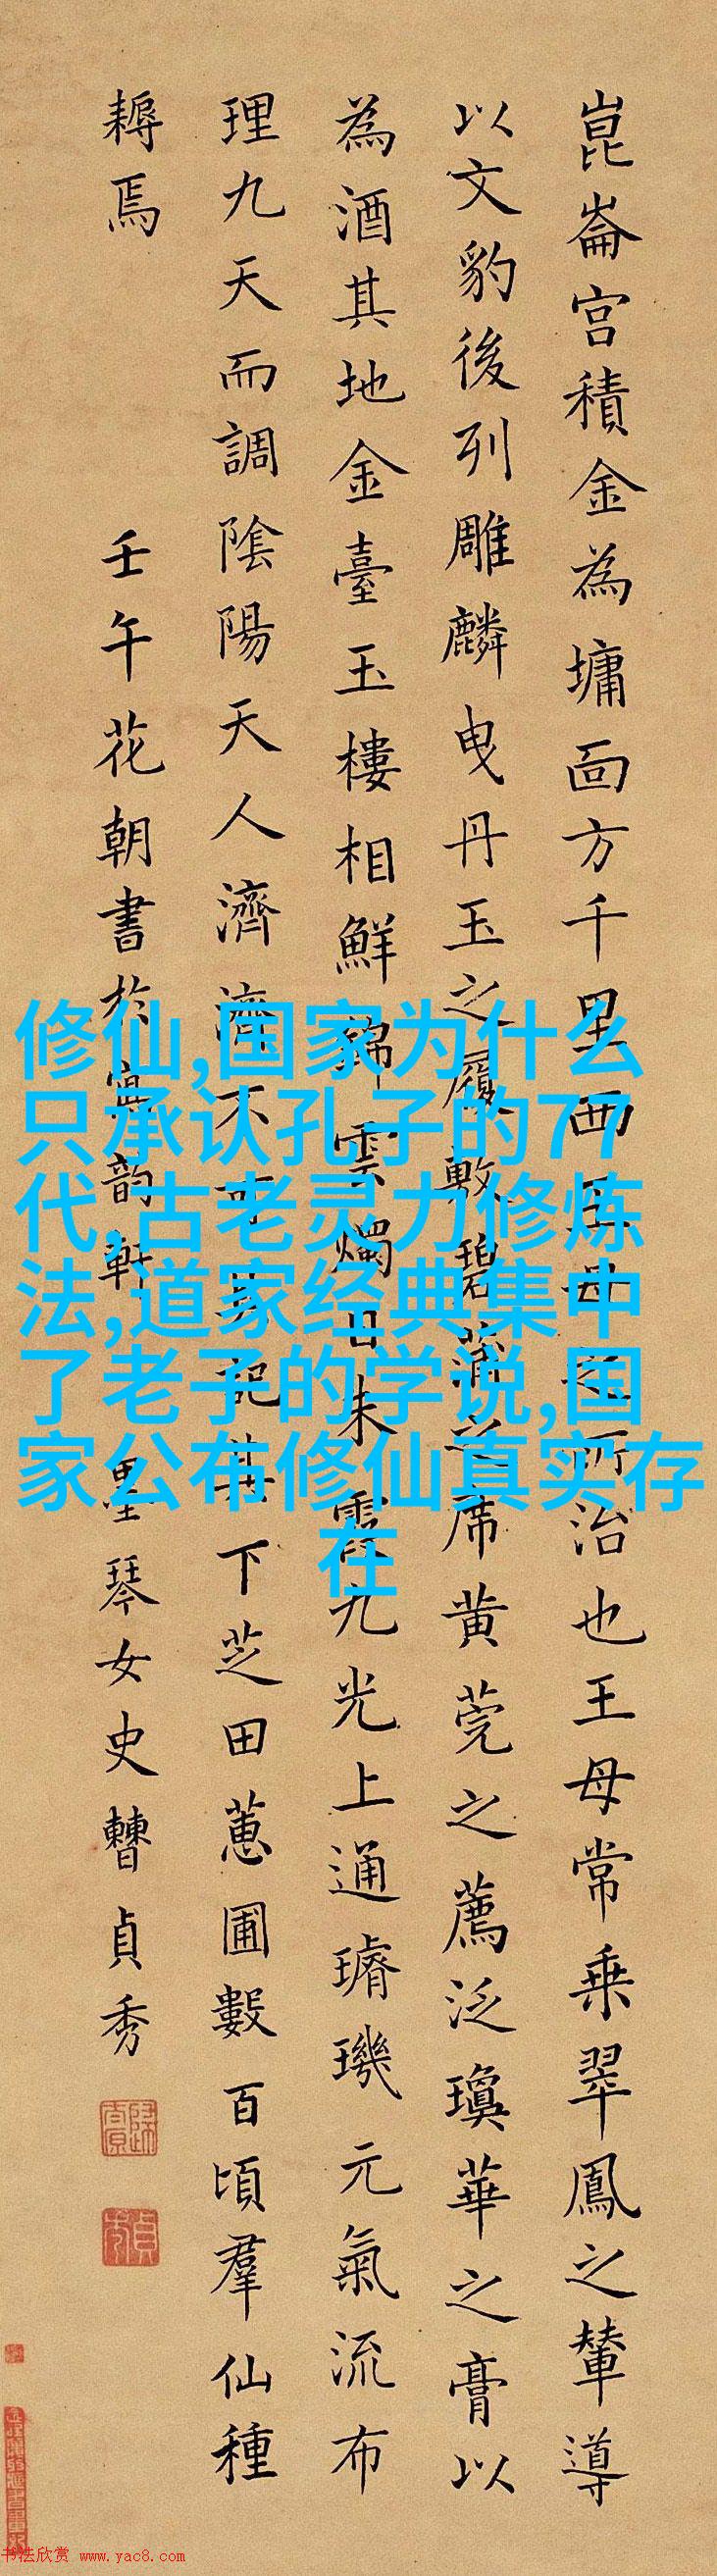 崑崙宮積金為墉面方千里西王母之所治也王母常乗翠鳳之輦導
以文豹後列雕麟曳丹玉之履敷碧蒲之席黄莞之薦泛瓊華之膏以
為酒其地金臺玉樓相鮮錦雲燭日朱霞九光上通璿璣元氣流布
理九天而調陰陽天人濟濟不可具記其下芝田蕙圃數百頃羣仙種
耨焉
壬午花朝書於寫韵軒 墨琴女史曹貞秀
修仙,国家为什么
只承认孔子的77
代,古老灵力修炼
法,道家经典集中
了老子的学说,国
家公布修仙真实存
在
书法欣赏 www.yac8.com